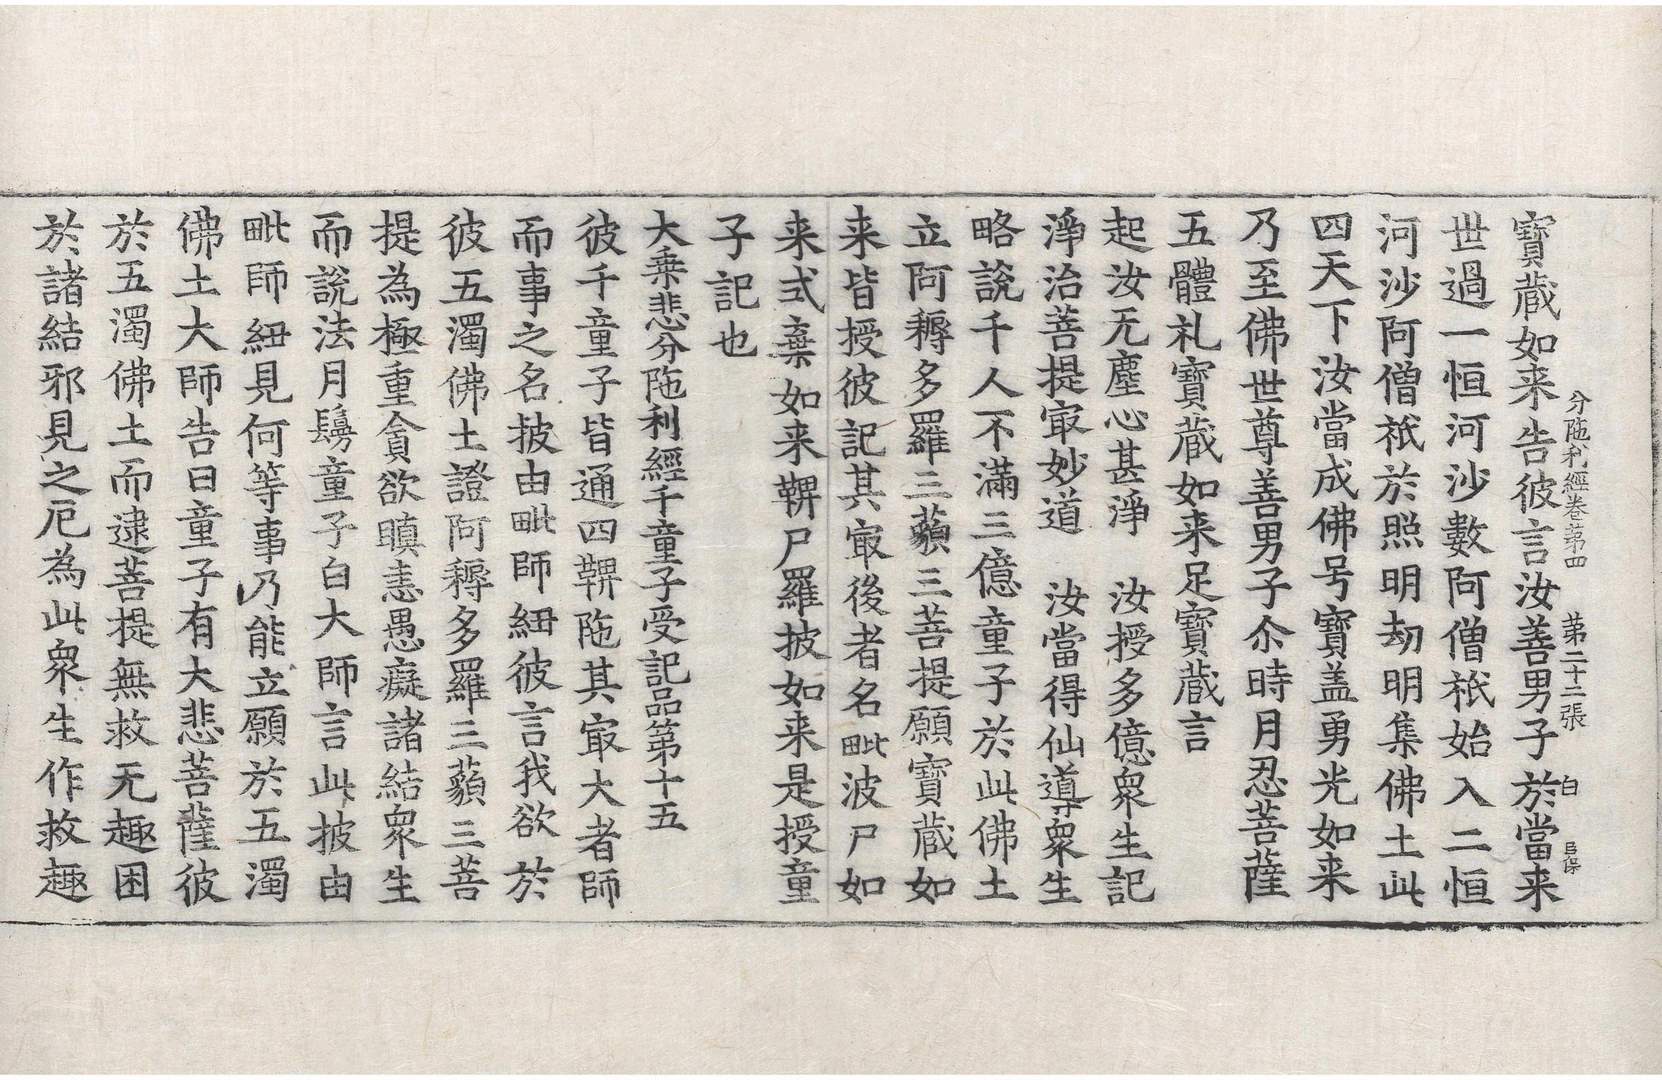 分陁利經卷苐四 苐二十二張 白
寶蔵如来告彼言汝善男子於當来
世過一恒河沙數阿僧祇始入二恒
河沙阿僧祇於照明劫明集佛土此
四天下汝當成佛号寶盖勇光如来
乃至佛世尊善男子尒時月忍菩薩
五體礼寶蔵如来足寶蔵言
起汝无塵心甚淨　汝授多億衆生記
淨治菩提㝡妙道　汝當得仙導衆生
略說千人不滿三億童子於此佛土
立阿耨多羅三藐三菩提願寶蔵如
来皆授彼記其㝡後者名毗波尸如
来式棄如来鞞尸羅披如来是授童
子記也
大乗悲分陁利經千童子受記品第十五
彼千童子皆通四鞞陁其㝡大者師
而事之名披由毗師紐彼言我欲於
彼五濁佛土證阿耨多羅三藐三菩
提為極重貪欲瞋恚愚癡諸結衆生
而說法月鬘童子白大師言此披由
毗師紐見何等事乃能立願於五濁
佛土大師告曰童子有大悲菩薩彼
於五濁佛土而逮菩提無救无趣困
於諸結邪見之厄為此衆生作救趣